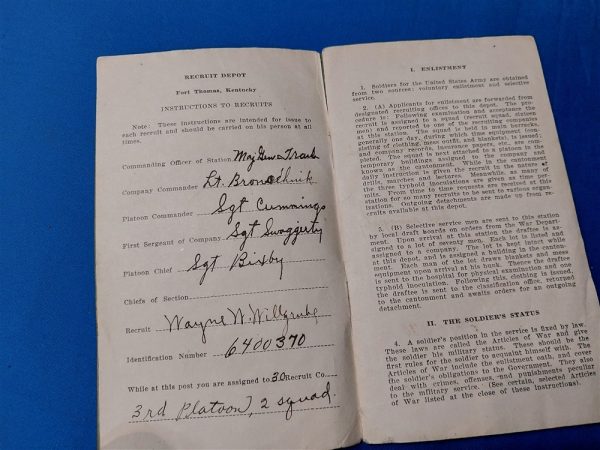 RECRUIT DEPOT
Fort Thomas, Kentucky
INSTRUCTIONS TO RECRUITS
Note: These instructions are intended for issue to
each recruit and should be carried on his person at all
times.
Commanding Officer of Station Maj
Company Commander Lt.
Platoon Commander Sgt Cummings
First Sergeant of Company Sgt Swaggerty
Platoon Chief Sgt Bixby
Chiefs of Section
Recruit Wayne W. Willgrube
Identification Number 6400370
While at this post you are assigned to 30 Recruit Co.
3rd Platoon, 2 squad.
I. ENLISTMENT
1. Soldiers for the United States Army are obtained
from two sources: voluntary enlistment and selective
service.
2. (A) Applicants for enlistment are forwarded from
designated recruiting offices to this depot. The pro-
cedure is: Following examination and acceptance the
recruit is assigned to a squad (recruit squad, sixteen
men) and reported to one of the recruiting companies
at this station. The squad is held in main barracks
generally one day, during which time equipment (con-
sisting of clothing, mess outfit, and blankets), is issued;
and company records, insurance papers, etc., are com-
pleted. The squad is next attached to a platoon in the
temporary buildings assigned to the company and
known as the cantonment. While in the cantonment
daily instruction is given the recruit in the nature of
drills, marches and lectures. Meanwhile, as many of
the three typhoid inoculations are given as time per-
mits. From time to time requests are received at this
station for so many recruits to be sent to various organi-
zations. Outgoing detachments are made up from re-
cruits available at this depot.
3. (B) Selective service men are sent to this station
by local draft boards on orders from the War Depart-
ment. Upon arrival at this station the draftee is as-
signed to a lot of seventy men. Each lot is listed and
assigned to a company. The lot is kept intact while
at this depot, and is assigned a building in the canton-
ment. Each man of the lot draws blankets and mess
equipment upon arrival at his bunk. Thence the draftee
is sent to the hospital for physical examination and one
typhoid inoculation. Following this, clothing is issued,
the draftee is sent to the classification office, returned
to the cantonment and awaits orders for an outgoing
detachment.
II. THE SOLDIER'S STATUS
4. A soldier's position in the service is fixed by law.
These laws are called the Articles of War and give
the soldier his military status. These should be the
first rules for the soldier to acquaint himself with. The
Articles of War include the enlistment oath, and cover
the soldier's obligations to the Government. They also
deal with crimes, offenses, and punishments peculiar
to the military service. (See certain, selected Articles
of War listed at the close of these instructions).